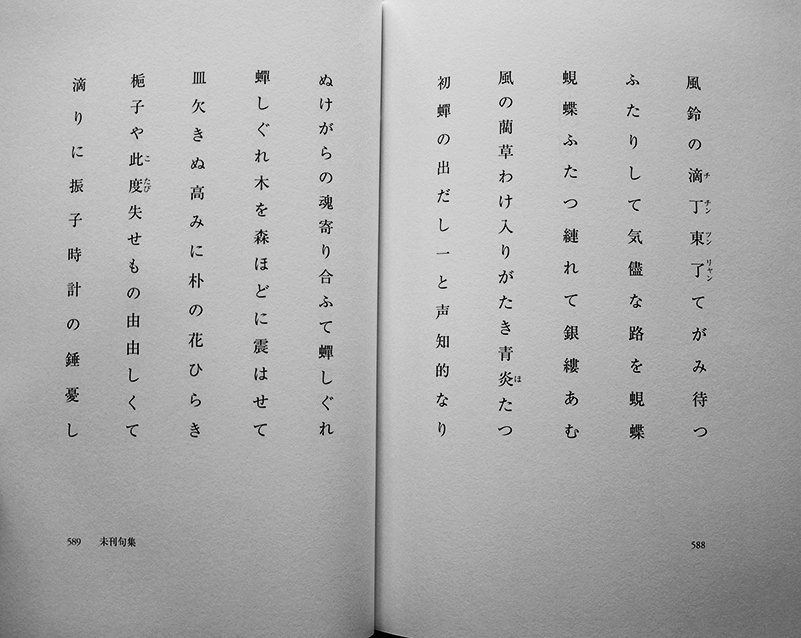 風鈴の滴丁東了てがみ待つ
チチンツンリャン
ふたりして気儘な路を蜆蝶
蜆蝶ふたつ縺れて銀縷あむ
風の藺草わけ入りがたき青炎たつ
ほ
初蟬の出だし一と声知的なり
588
ぬけがらの魂寄り合ふて蟬しぐれ
蟬しぐれ木を森ほどに震はせて
皿欠きぬ高みに朴の花ひらき
梔子や此度失せもの由由しくて
こたび
滴りに振子時計の錘憂し
589 未刊句集